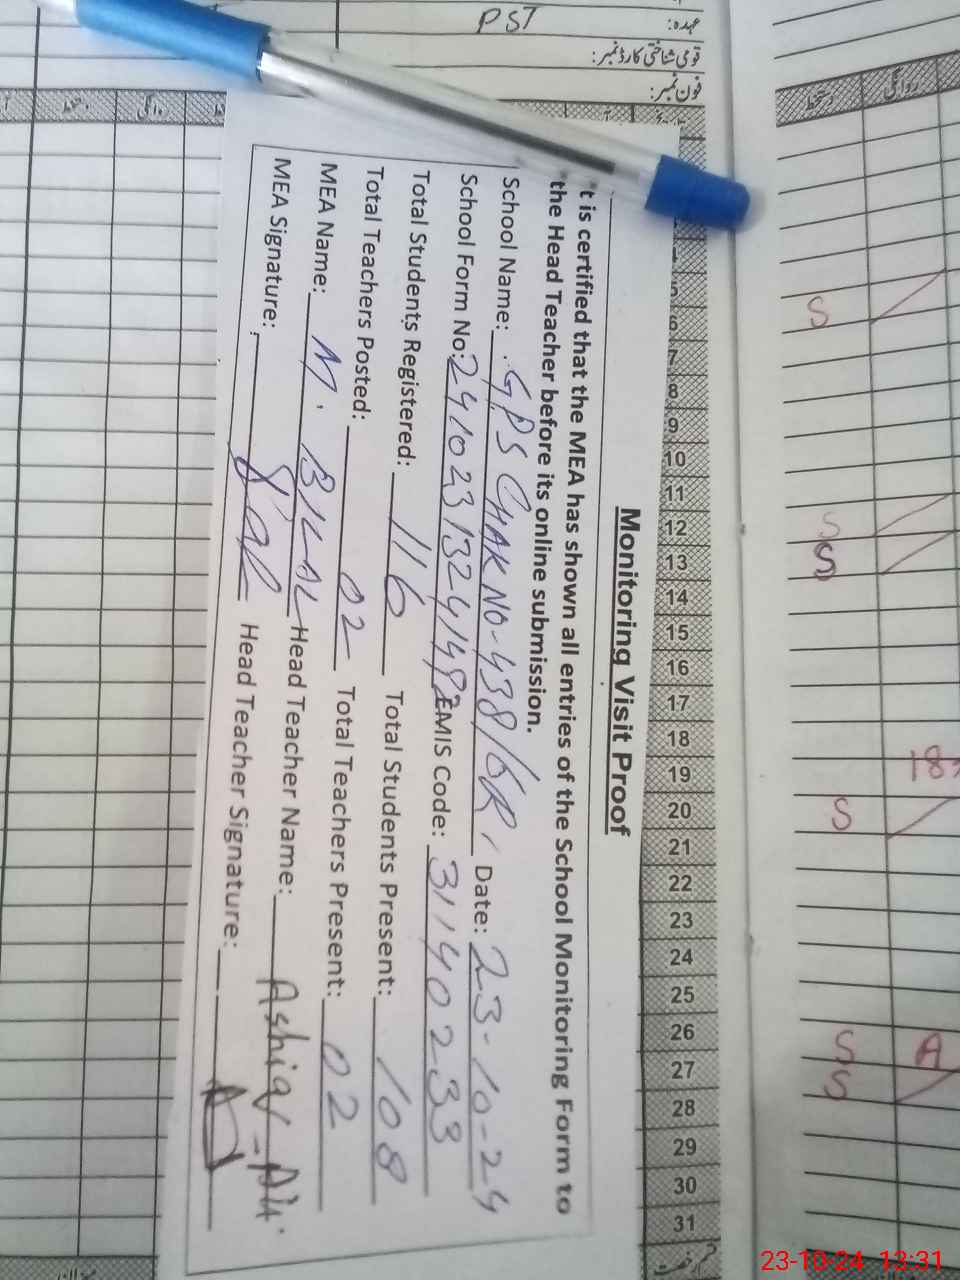 عہدہ: PST
قومی شناختی کارڈ نمبر:
فون نمبر:
Monitoring Visit Proof
t is certified that the MEA has shown all entries of the School Monitoring Form to
the Head Teacher before its online submission.
School Name: GPS CHAK NO-438/6R, Date: 23-10-24
School Form No: EMIS Code: 31140233
Total Students Registered: 116 Total Students Present: 108
Total Teachers Posted: 02 Total Teachers Present: 02
MEA Name: M. BILAL Head Teacher Name: Ashiq Ali
MEA Signature: Head Teacher Signature:
دستخط
روانگی
5
6
7
8
9
10
11
12
13
14
15
16
17
18
19
20
21
22
23
24
25
26
27
28
29
30
31
S
S
S
S
S
A
S
23-10-24 13:31